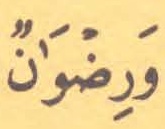 وَرِضْوَانٌ